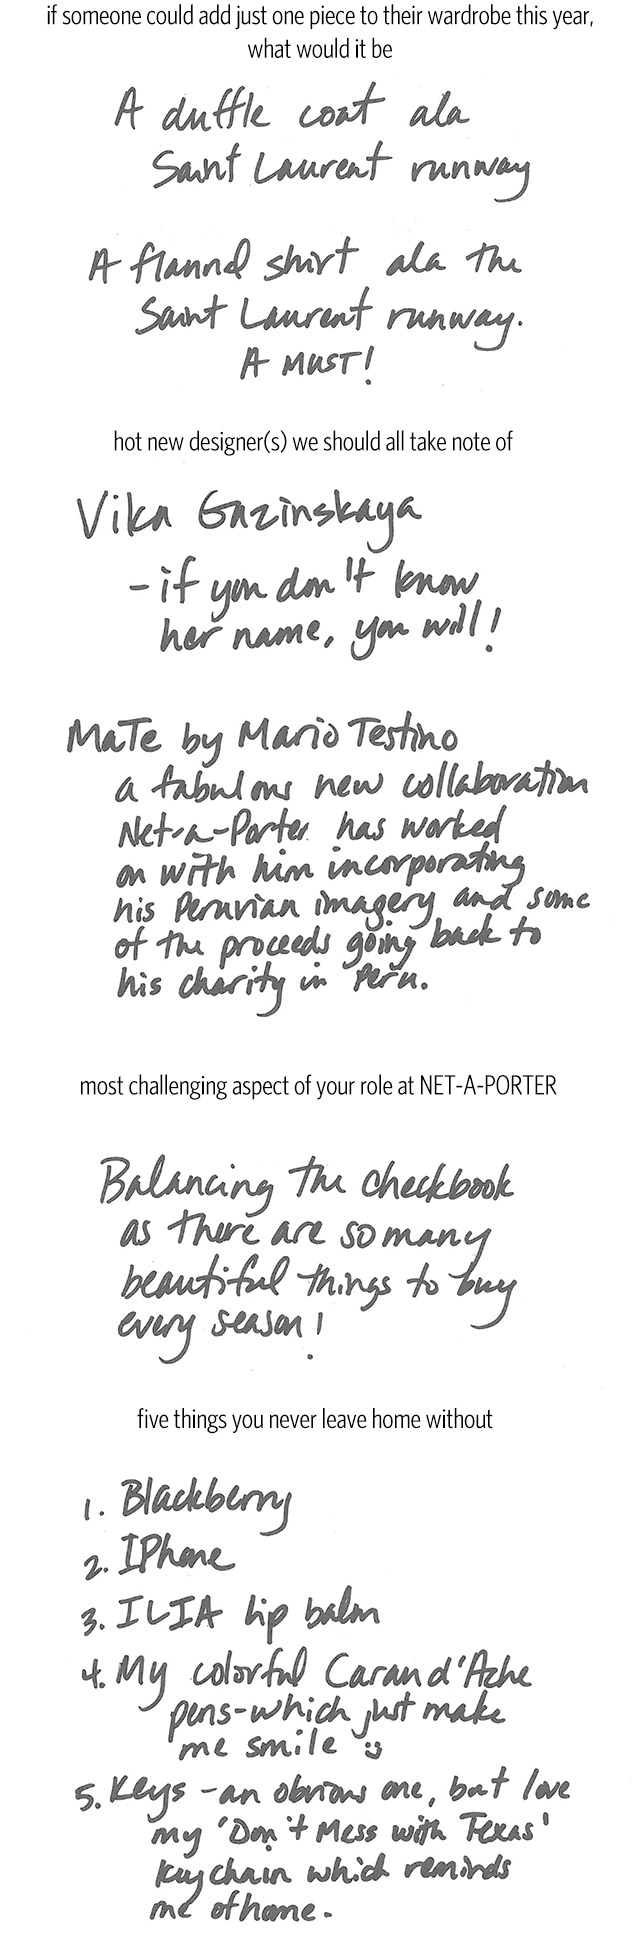 if someone could add just one piece to their wardrobe this year,
what would it be
A duffle coat ala
Saint Laurent runway
A flannel shirt ala the
Saint Laurent runway.
A MUST!
hot new designer(s) we should all take note of
Vika Gazinskaya
- if you don't know
her name, you will!
MaTe by Mario Testino
a fabulous new collaboration
Net-a-Porter has worked
on with him incorporating
his Peruvian imagery and some
of the proceeds going back to
his charity in Peru.
most challenging aspect of your role at NET-A-PORTER
Balancing the checkbook
as there are so many
beautiful things to buy
every season!
five things you never leave home without
1. Blackberry
2. IPhone
3. ILIA lip balm
4. My colorful Caran d'Ache
pens-which just make
me smile :)
5. Keys - an obvious one, but love
my 'Don't Mess with Texas'
keychain which reminds
me of home.